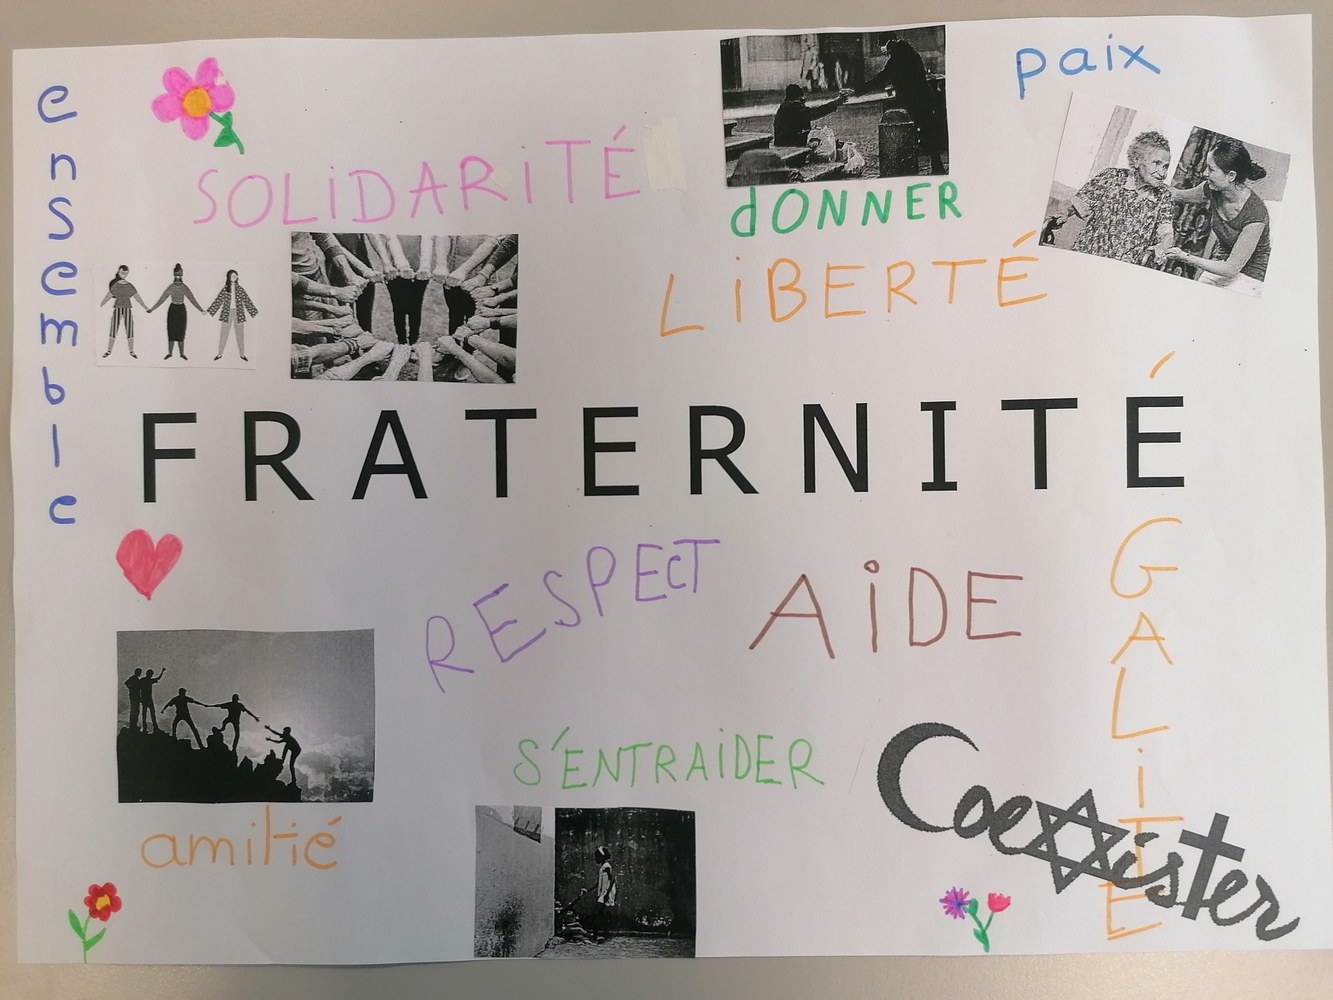 ensemble
paix
SOLiDARiTÉ
dONNER
LiBERTÉ
FRATERNITÉ
RESPECT
AiDE
ÉGALiTE
S'ENTRAiDER
Coexister
amitié